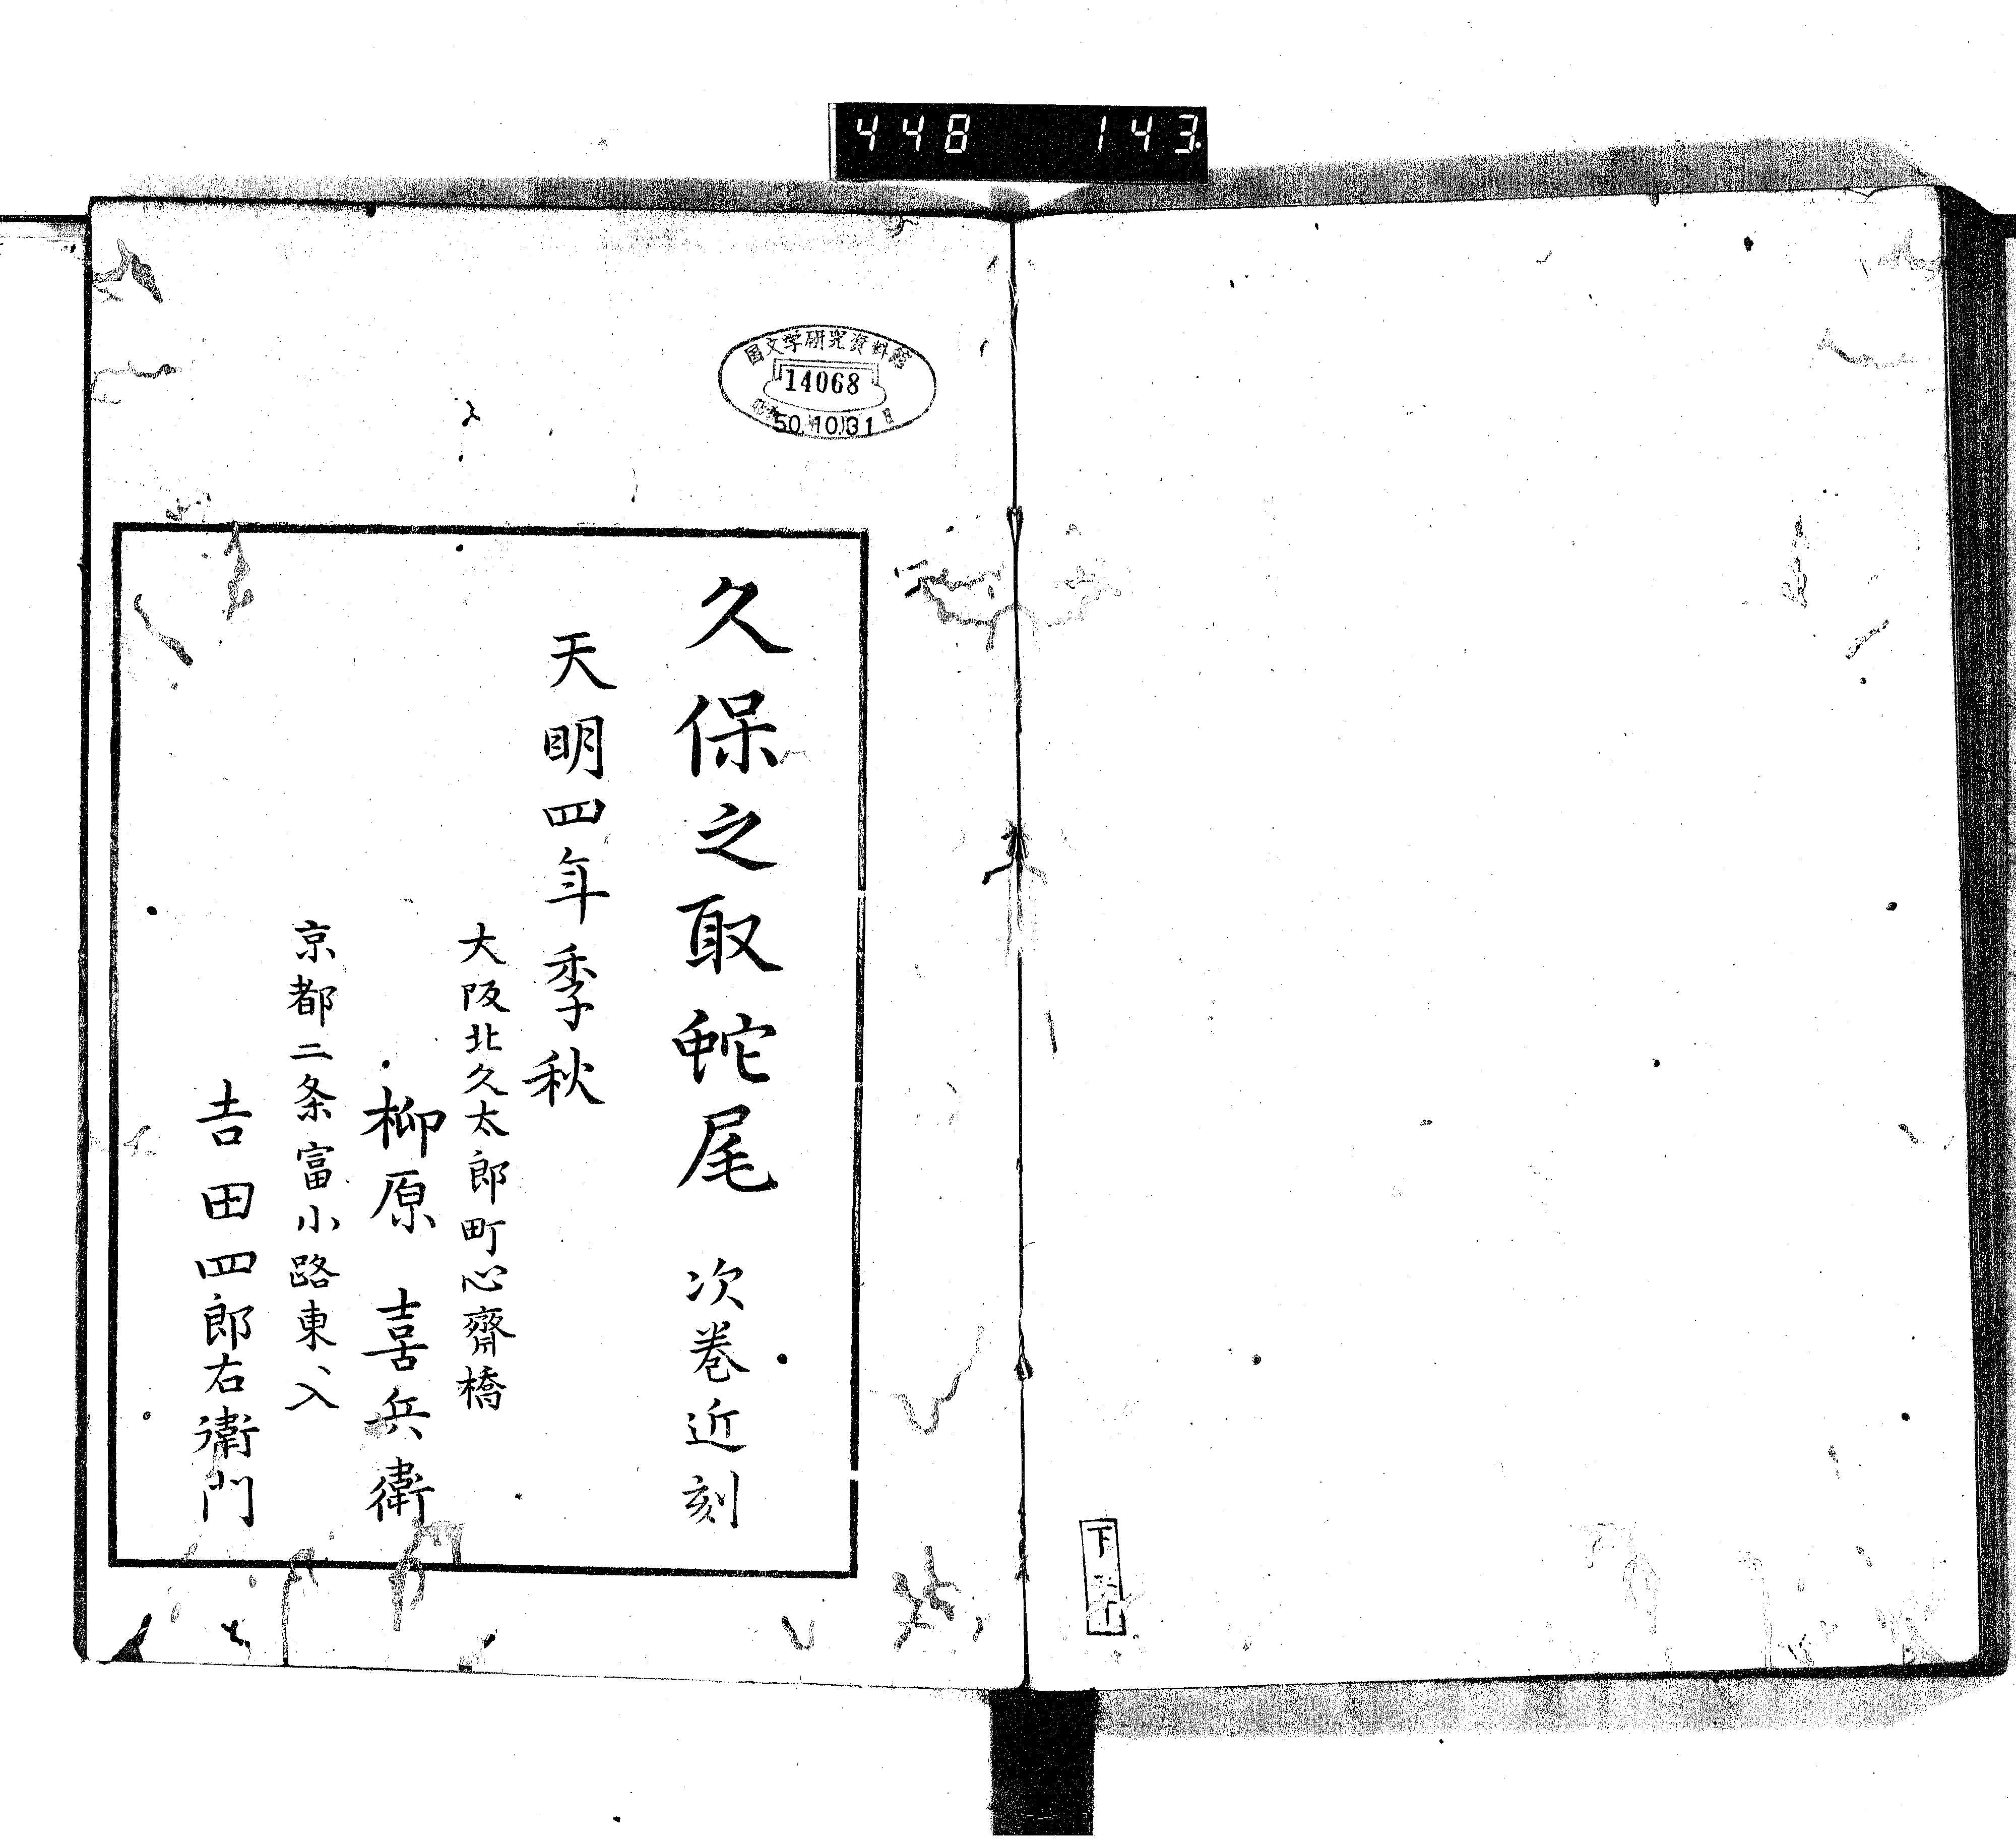 448 143
国文学研究資料館
14068
50.10.31
久保之取蛇尾 次巻近刻
天明四年季秋
大阪北久太郎町心齋橋
柳原 喜兵衛
京都二条富小路東ヘ入
吉田四郎右衛門